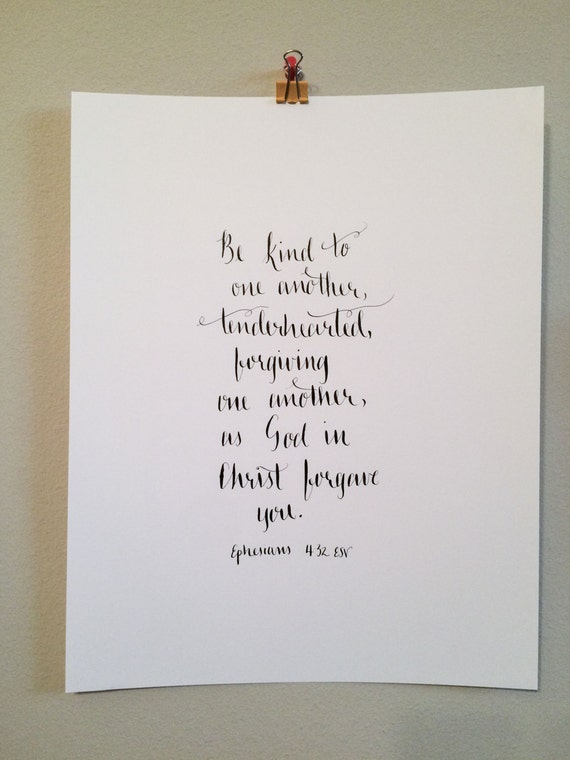 Be kind to
one another,
tenderhearted,
forgiving
one another,
as God in
Christ forgave
you.
Ephesians 4:32 ESV